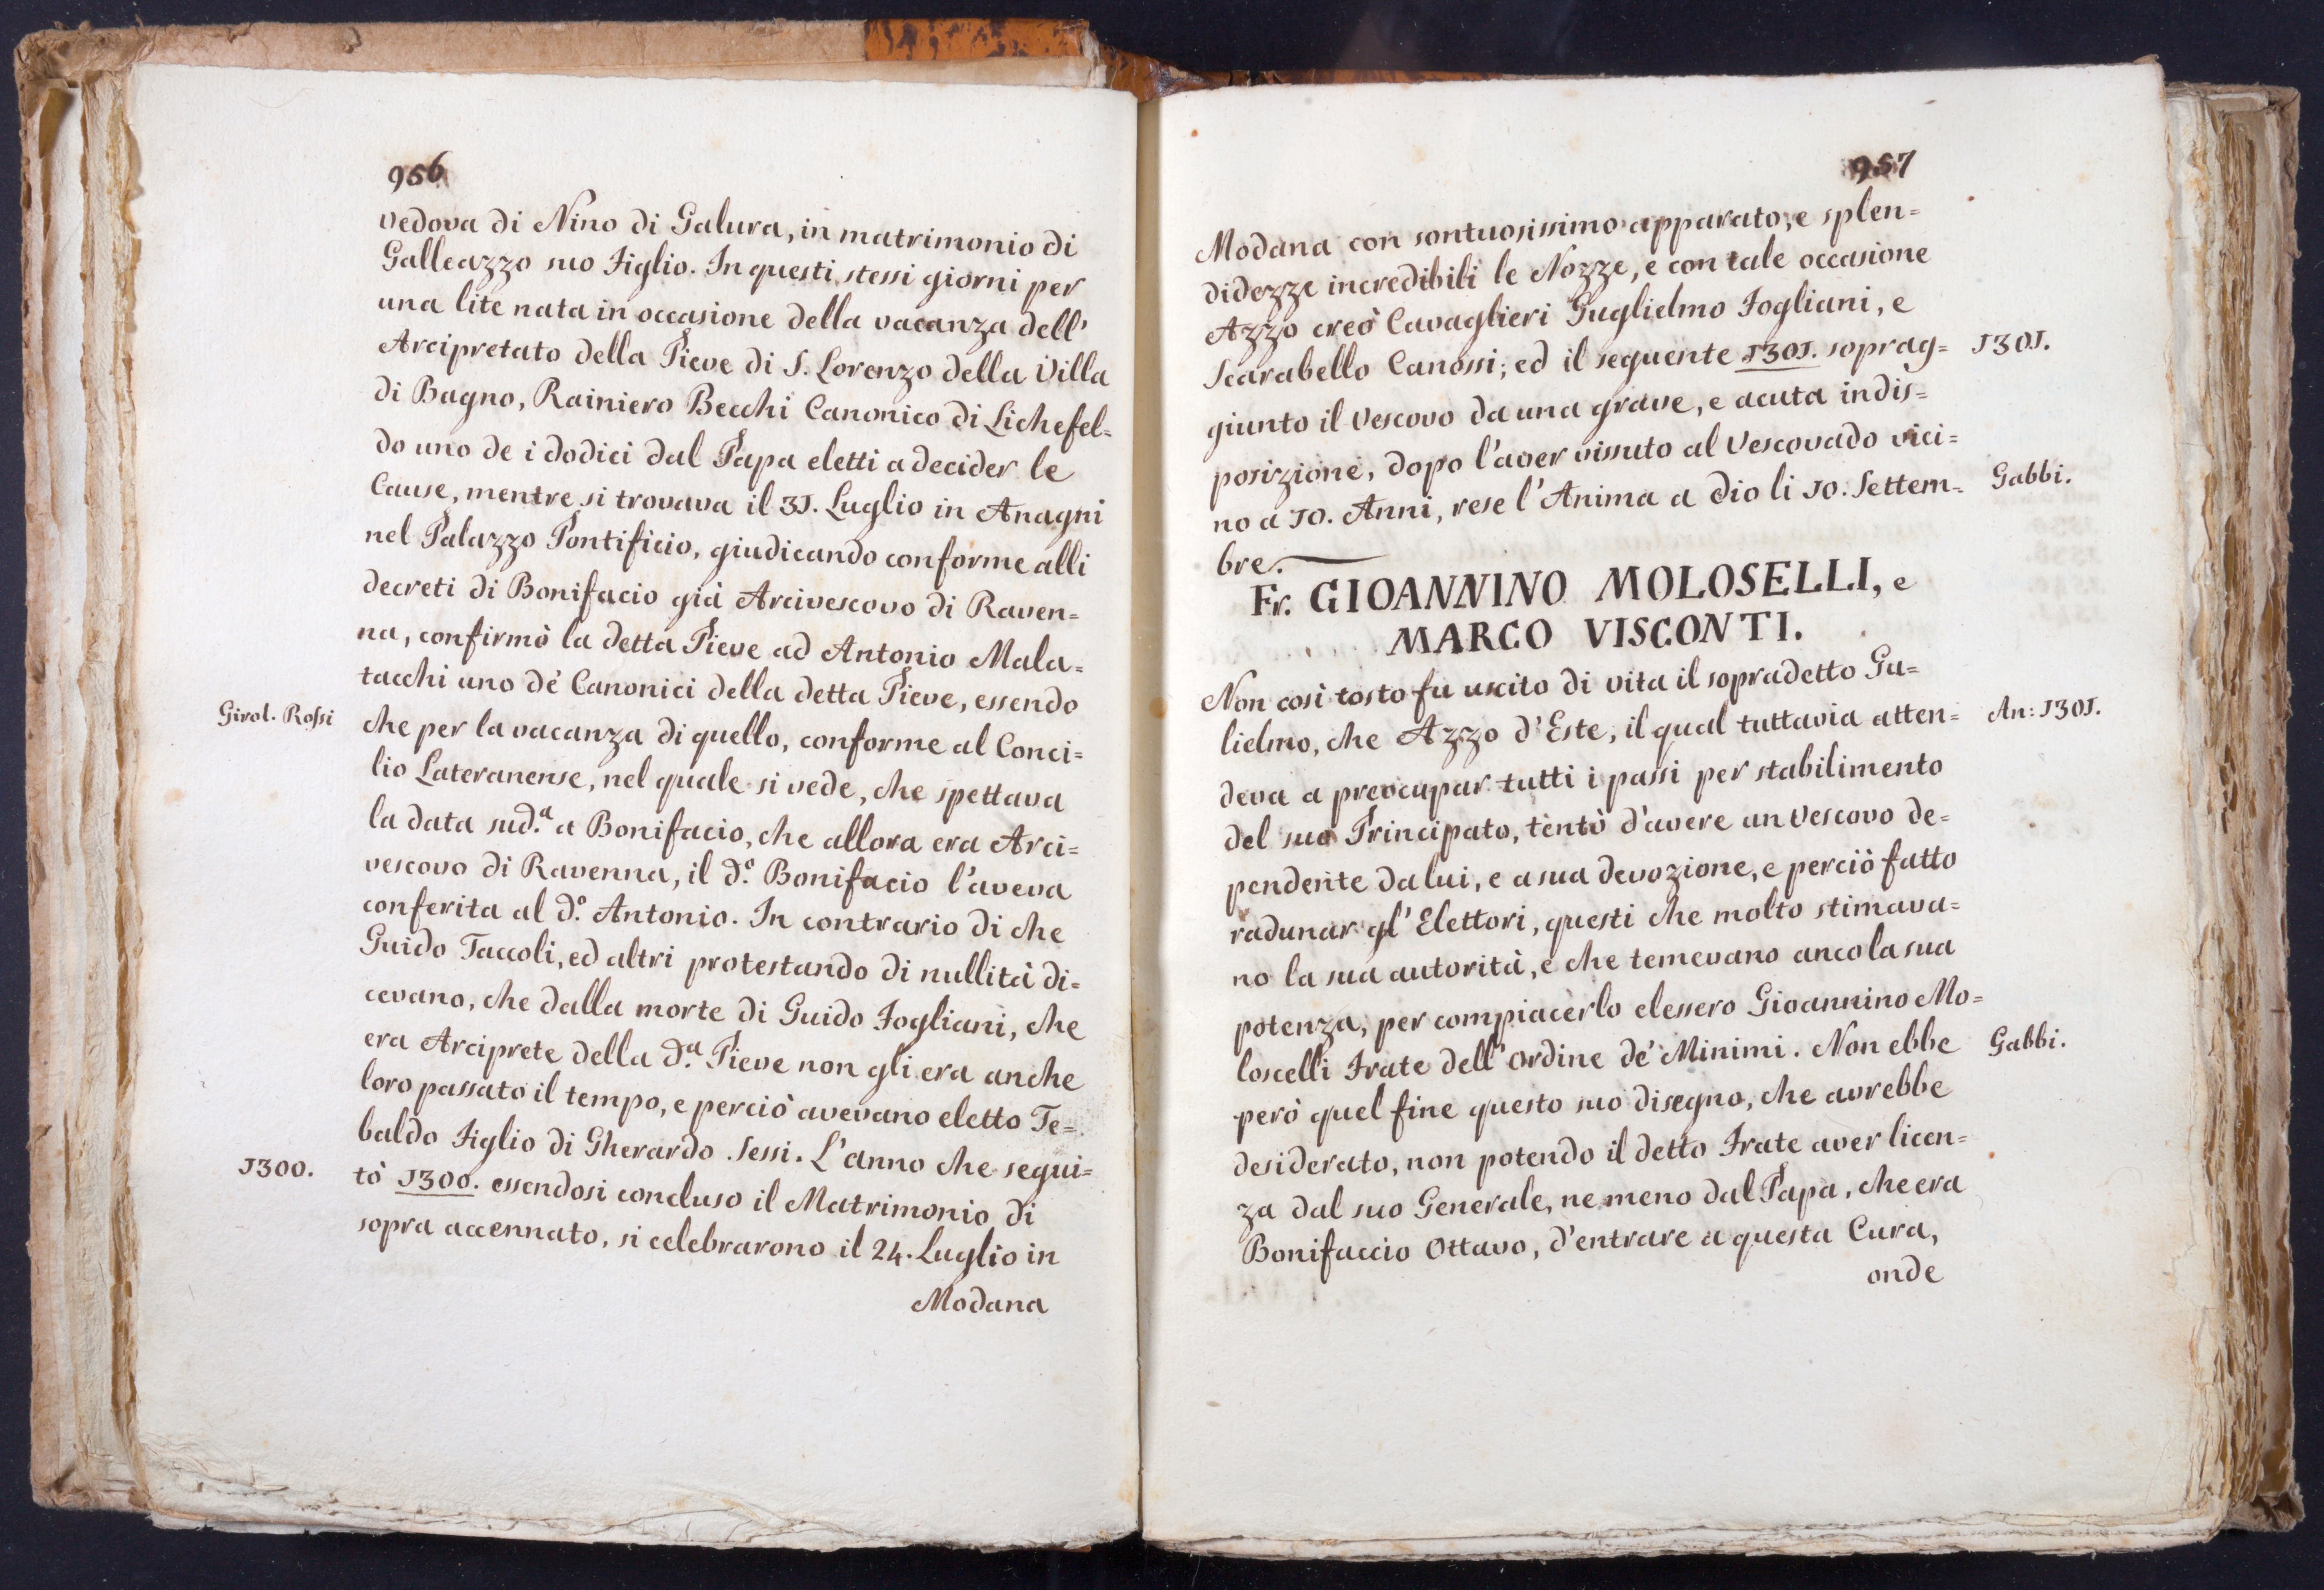 956
vedova di Nino di Galura, in matrimonio di
Galleazzo suo Figlio. In questi stessi giorni per
una lite nata in occasione della vacanza dell'
Arcipretato della Pieve di S. Lorenzo della Villa
di Bagno, Rainiero Becchi Canonico di Lichefel=
do uno de i dodici dal Papa eletti a decider le
Cause, mentre si trovava il 31. Luglio in Anagni
nel Palazzo Pontificio, giudicando conforme alli
decreti di Bonifacio già Arcivescovo di Raven=
na, confirmò la detta Pieve ad Antonio Mala=
tacchi uno de' Canonici della detta Pieve, essendo
Girol. Rossi
che per la vacanza di quello, conforme al Conci=
lio Lateranense, nel quale si vede, che spettava
la data sud.ª a Bonifacio, che allora era Arci=
vescovo di Ravenna, il d.º Bonifacio l'aveva
conferita al d.º Antonio. In contrario di che
Guido Taccoli, ed altri protestando di nullità di=
cevano, che dalla morte di Guido Fogliani, che
era Arciprete della d.ª Pieve non gli era anche
loro passato il tempo, e perciò avevano eletto Te=
baldo Figlio di Gherardo Sessi. L'anno che segui=
1300.
tò 1300. essendosi concluso il Matrimonio di
sopra accennato, si celebrarono il 24. Luglio in
Modana
957
Modana con sontuosissimo apparato, e splen=
didezze incredibili le Nozze, e con tale occasione
Azzo creò Cavaglieri Guglielmo Fogliani, e
Scarabello Canossi; ed il seguente 1301. soprag=
1301.
giunto il Vescovo da una grave, e acuta indis=
posizione, dopo l'aver vissuto al Vescovado vici=
no a 10. Anni, rese l'Anima a Dio li 10. Settem=
Gabbi.
bre.
Fr. GIOANNINO MOLOSELLI, e
MARCO VISCONTI.
Non così tosto fu uscito di vita il sopradetto Gu=
lielmo, che Azzo d'Este, il qual tuttavia atten=
An: 1301.
deva a preocupar tutti i passi per stabilimento
del suo Principato, tentò d'avere un Vescovo de=
pendente da lui, e a sua devozione, e perciò fatto
radunar gl'Elettori, questi che molto stimava=
no la sua autorità, e che temevano anco la sua
potenza, per compiacerlo elessero Gioannino Mo=
loscelli Frate dell'Ordine de' Minimi. Non ebbe
Gabbi.
però quel fine questo suo disegno, che avrebbe
desiderato, non potendo il detto Frate aver licen=
za dal suo Generale, ne meno dal Papa, che era
Bonifaccio Ottavo, d'entrare a questa Cura,
onde